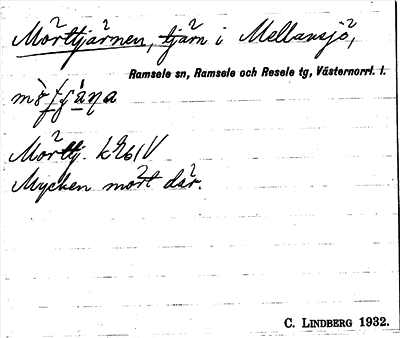 Mörttjärnen, tjärn i Mellansjö,
Ramsele sn, Ramsele och Resele tg, Västernorrl. l.
Mörttj.
Mycken mört där.
C. LINDBERG 1932.